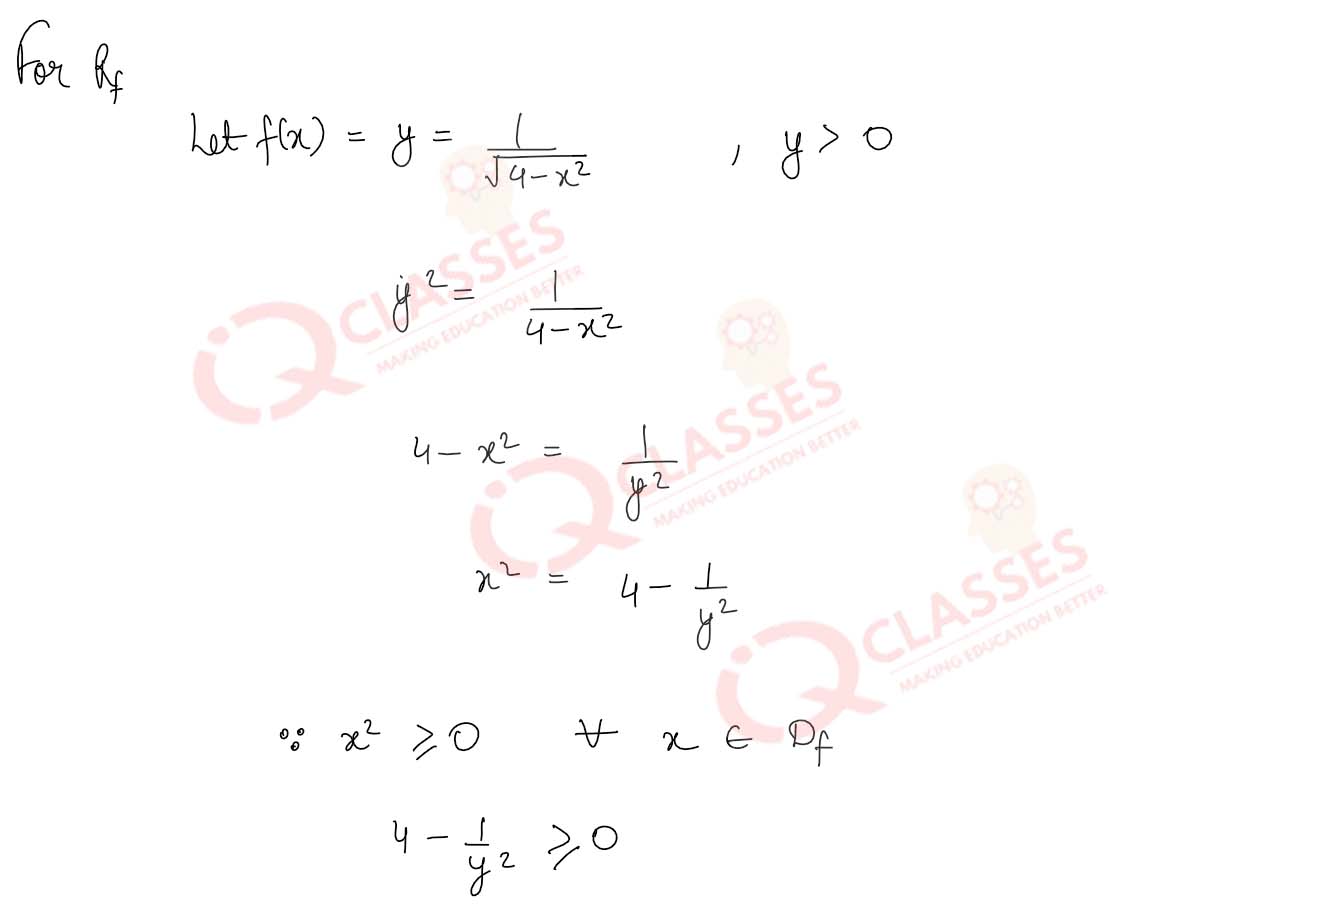 For Rf
Let f(x) = y = 1/√(4-x²) , y > 0
y² = 1/(4-x²)
4 - x² = 1/y²
x² = 4 - 1/y²
∵ x² ⩾ 0 ∀ x ∈ Df
4 - 1/y² ⩾ 0
iQ CLASSES
MAKING EDUCATION BETTER
iQ CLASSES
MAKING EDUCATION BETTER
iQ CLASSES
MAKING EDUCATION BETTER